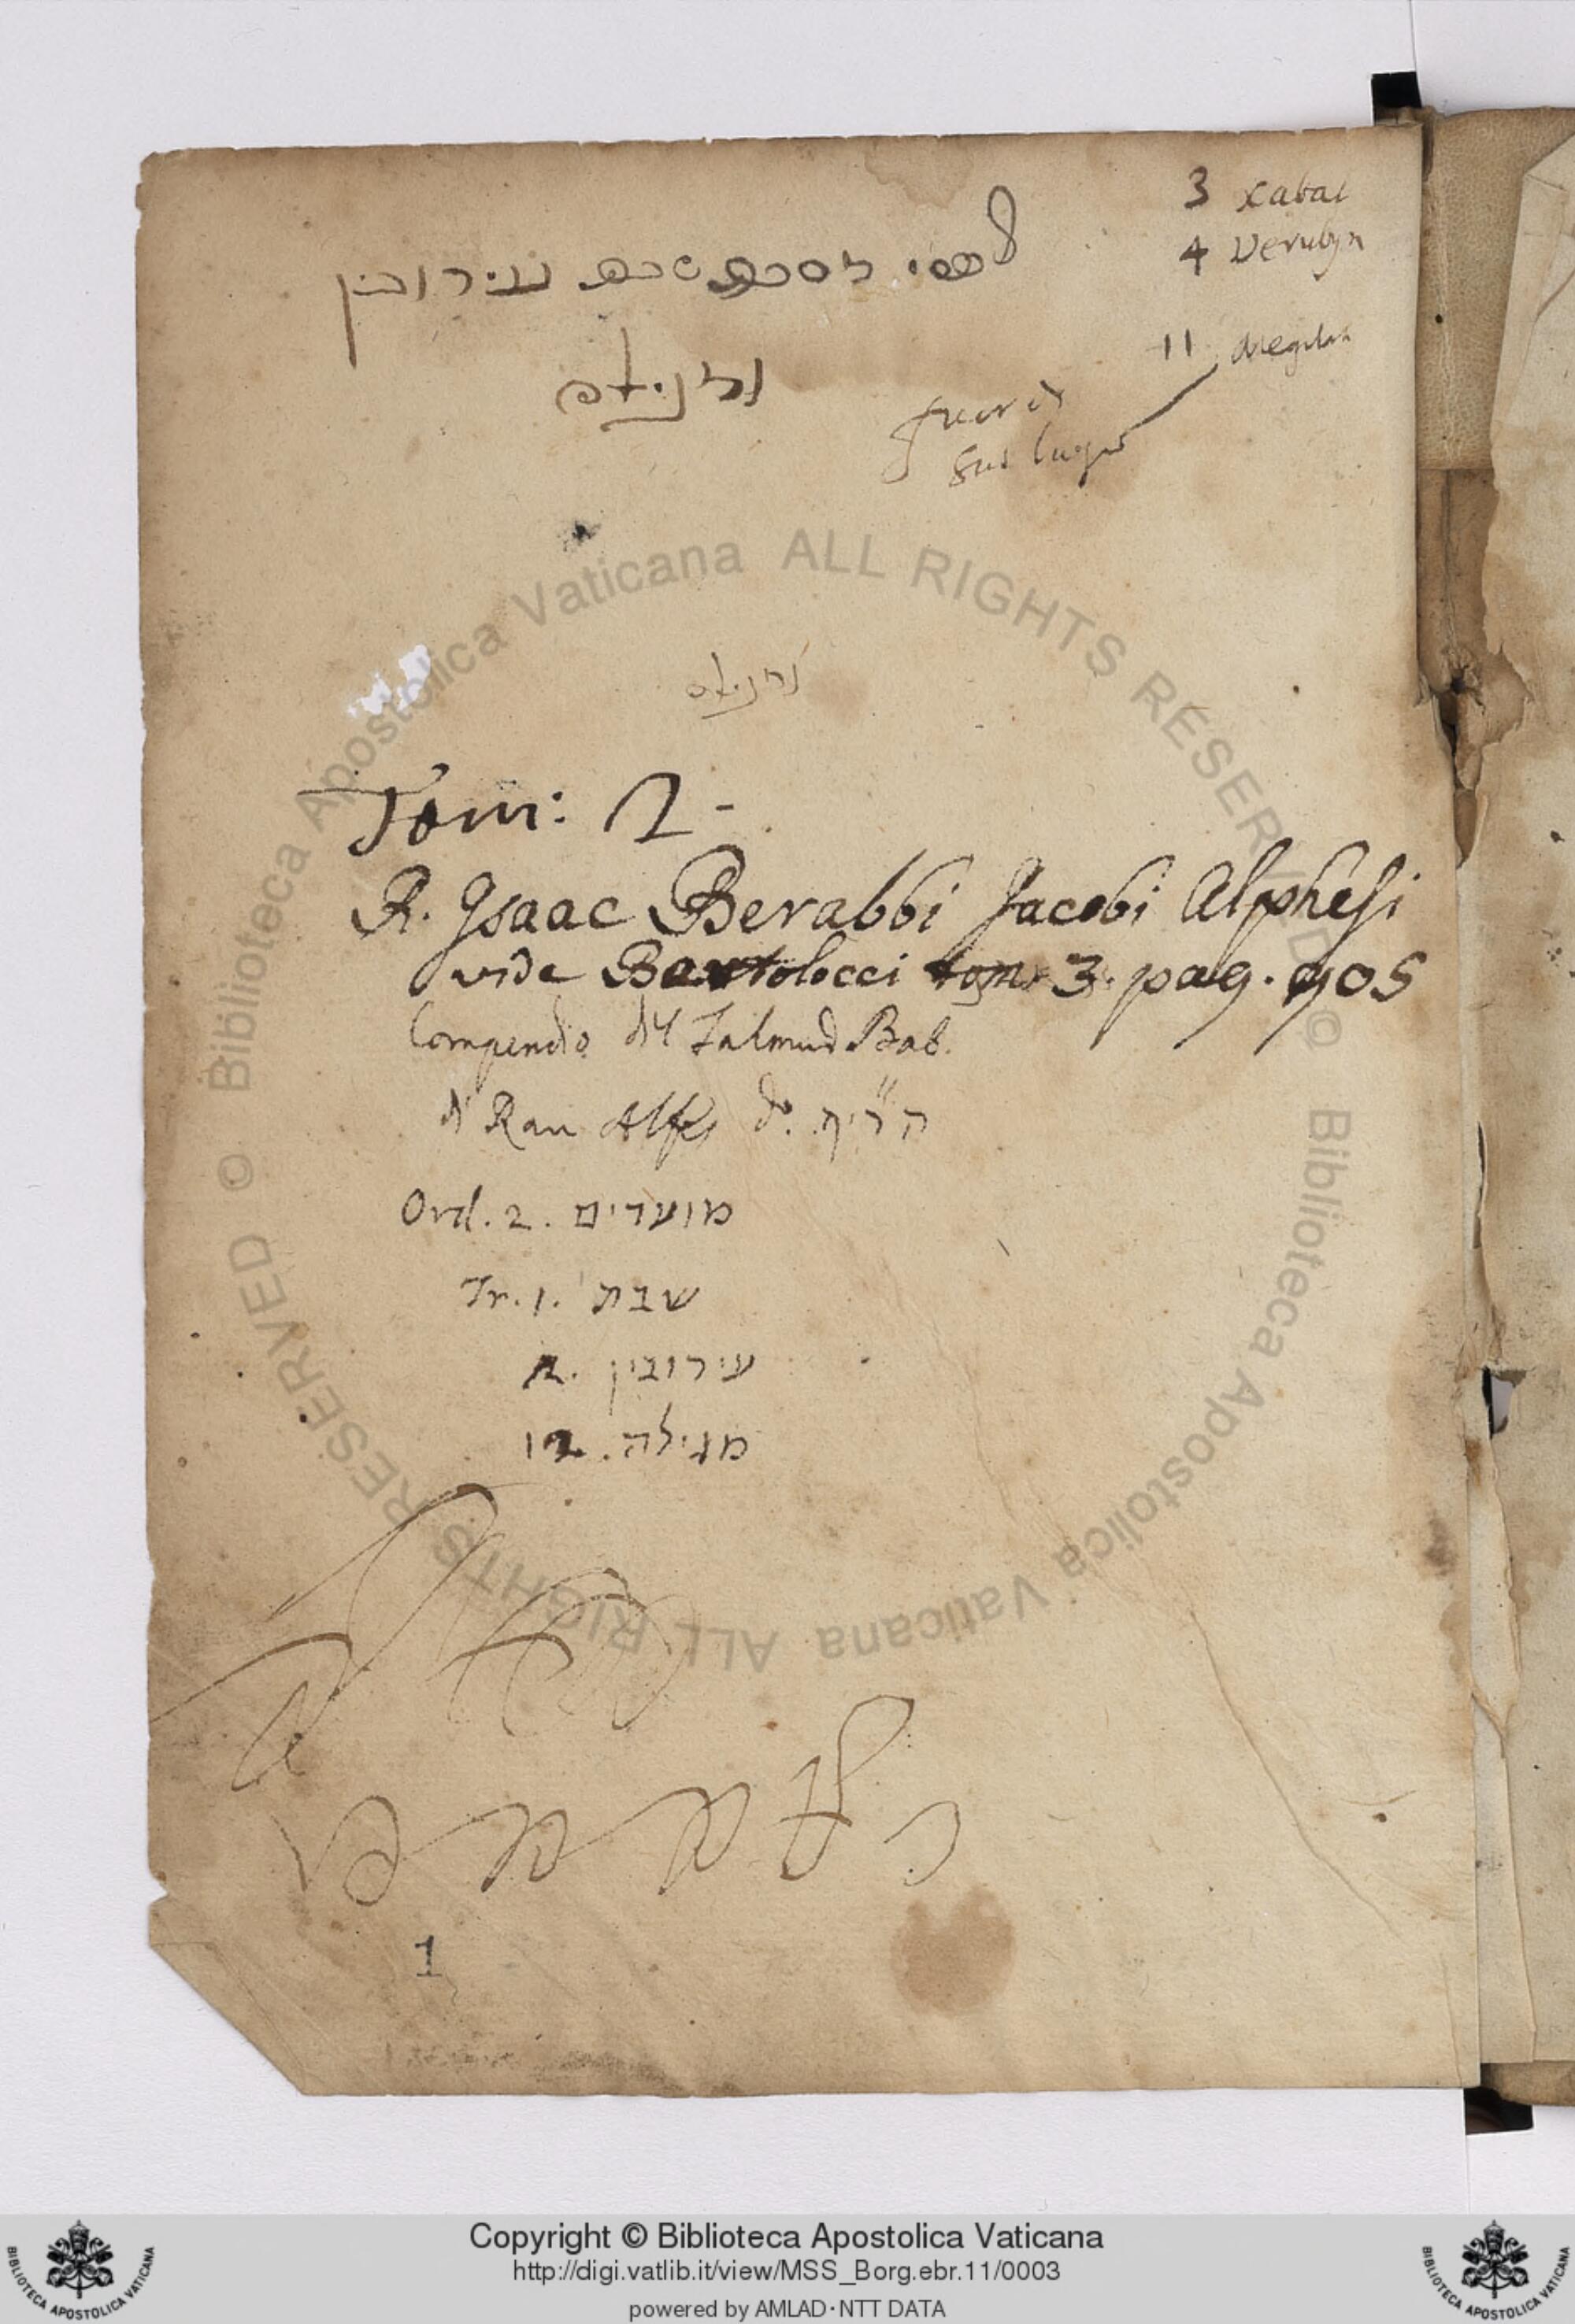 3 Xabat
4 Verubyn
אלפסי מסכת שבת עירובין
11 Megilah
ומגילה
ומגילה
Tom: 2 -
R. Isaac Berabbi Jacobi Alphesi
vide Bartolocci tom 3. pag. 905
Compendio del Talmud Bab.
di Rau Alfes do. הרי״ף
Ord. 2. מועדים
Tr. 1. שבת
עירובין .2
מגילה .12
1
© Biblioteca Apostolica Vaticana ALL RIGHTS RESERVED © Biblioteca Apostolica Vaticana ALL RIGHTS RESERVED
Copyright © Biblioteca Apostolica Vaticana
http://digi.vatlib.it/view/MSS_Borg.ebr.11/0003
powered by AMLAD·NTT DATA
BIBLIOTECA APOSTOLICA VATICANA
BIBLIOTECA APOSTOLICA VATICANA